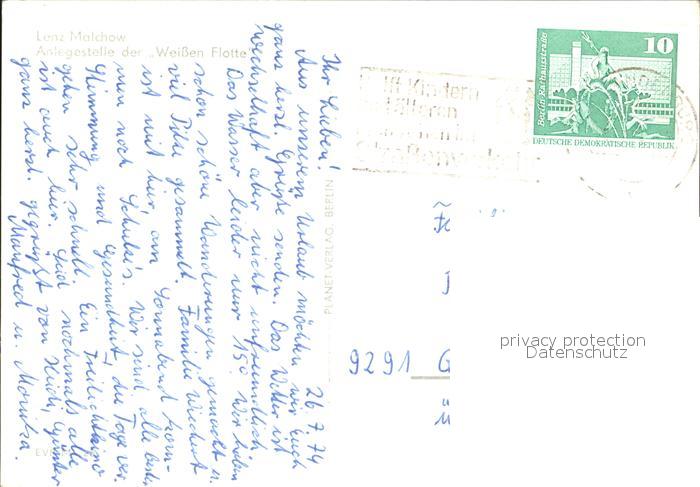 Lenz Malchow
Anlegestelle der „Weißen Flotte"
26.7.74
Ihr Lieben!
Aus unserem Urlaub möchten wir Euch
ganz herzl. Grüße senden. Das Wetter ist
wechselhaft aber nicht unfreundlich
Das Wasser leider nur 15°. Wir haben
schon schöne Wanderungen gemacht u.
viel Pilze gesammelt. Familie
ist mit hier am Sonnabend
men noch Schula's. Wir sind alle bester
Stimmung und Gesundheit, die Tage ver-
gehen sehr schnell. Ein Freilichtkino
ist auch hier. Seid nochmals alle
ganz herzl. gegrüßt von Heidi, Günter
Manfred u. Monika.
PLANET-VERLAG BERLIN
EV
Kindern
Älteren
10
Berlin, Rathausstraße
DEUTSCHE DEMOKRATISCHE REPUBLIK
9291 G
privacy protection
Datenschutz